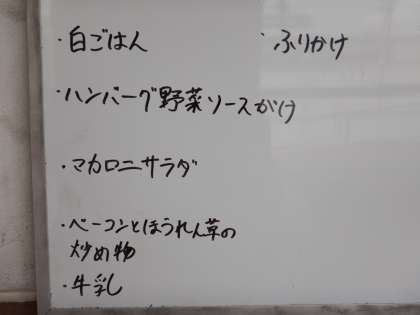 ・白ごはん ・ふりかけ
・ハンバーグ野菜ソースがけ
・マカロニサラダ
・ベーコンとほうれん草の
炒め物
・牛乳